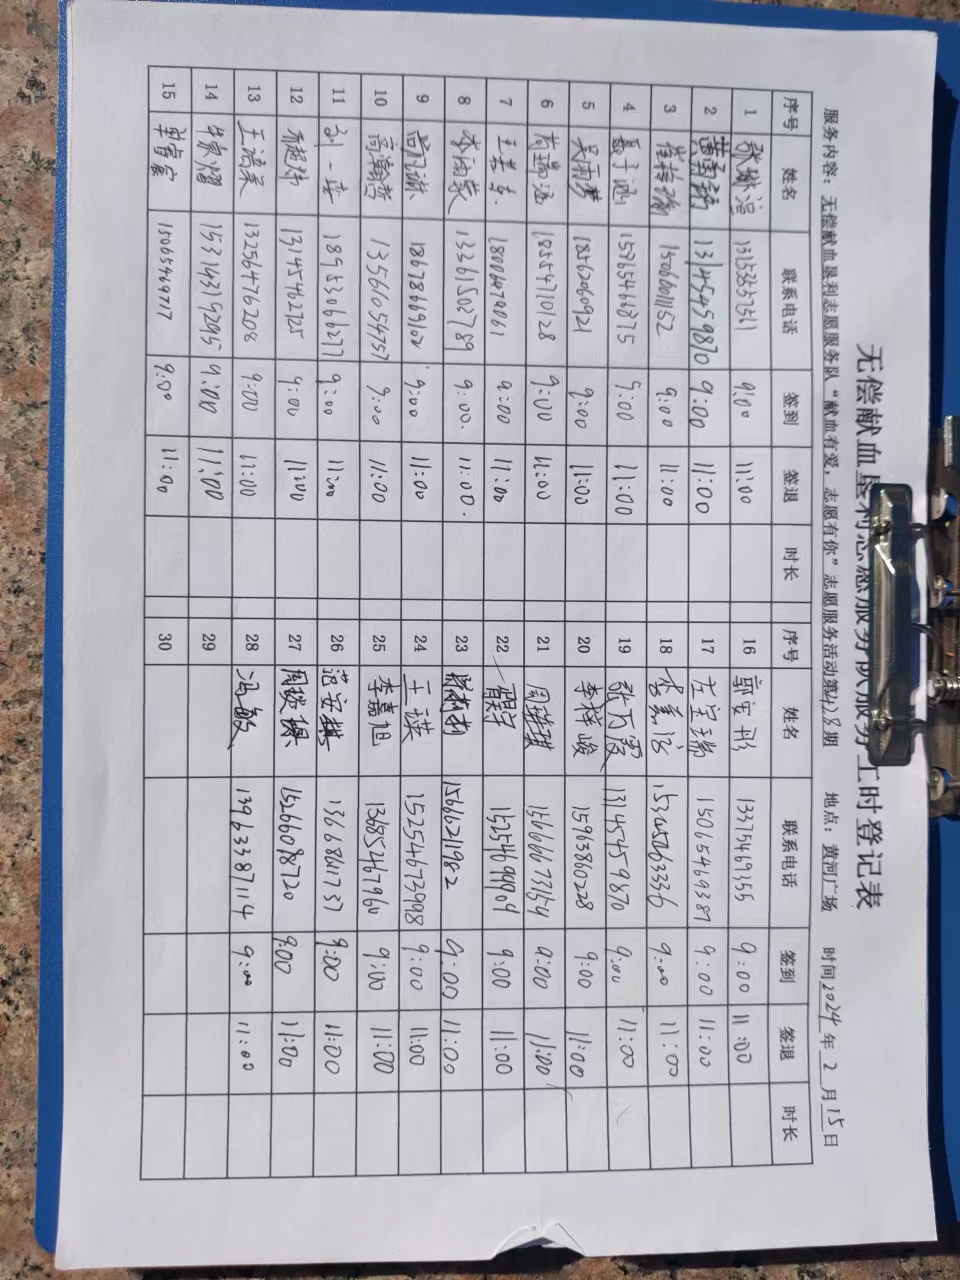 无偿献血垦利志愿服务队服务工时登记表
服务内容：无偿献血垦利志愿服务队“献血有爱，志愿有你”志愿服务活动第428期 地点：黄河广场 时间2024年2月15日
序号 姓名 联系电话 签到 签退 时长 序号 姓名 联系电话 签到 签退 时长
1 张 9:00 11:00 16 郭安彤 13375469155 9:00 11:00
2 黄 13145459870 9:00 11:00 17 左宝瑞 15065469387 9:00 11:00
3 崔 15066001152 9:00 11:00 18 李 15345063336 9:00 11:00
4 聂 15765466875 9:00 11:00 19 张万霞 13145459870 9:00 11:00
5 吴雨梦 18562060921 9:00 11:00 20 李梓峻 15963860228 9:00 11:00
6 18554710128 9:00 11:00 21 周 9:00 11:00
7 王 18006479061 9:00 11:00 22 9:00 11:00
8 李雨 13361502789 9:00. 11:00. 23 15666211982 9:00 11:00
9 尚 18678669102 9:00 11:00 24 王祺 15254673998 9:00 11:00
10 高瀚哲 13561054757 9:00 11:00 25 李嘉旭 13685467960 9:00 11:00
11 刘一 18953066277 9:00 11:00 26 范安祺 13668601737 9:00 11:00
12 13145462725 9:00 11:00 27 周 15266098720 9:00 11:00
13 王 13256476208 9:00 11:00 28 冯敏 13963387114 9:00 11:00
14 牛 15314319295 9:00 11:00 29
15 单 15065469717 9:00 11:00 30